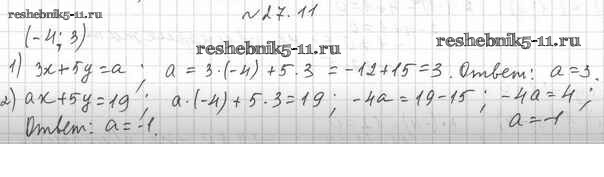 reshebnik5-11.ru
№27.11
(-4; 3)
reshebnik5-11.ru
1) 3x+5y=a; a = 3·(-4)+5·3 = -12+15=3. Ответ: a=3.
2) ax+5y=19; a·(-4)+5·3=19; -4a=19-15; -4a=4;
a=-1
Ответ: a=-1.